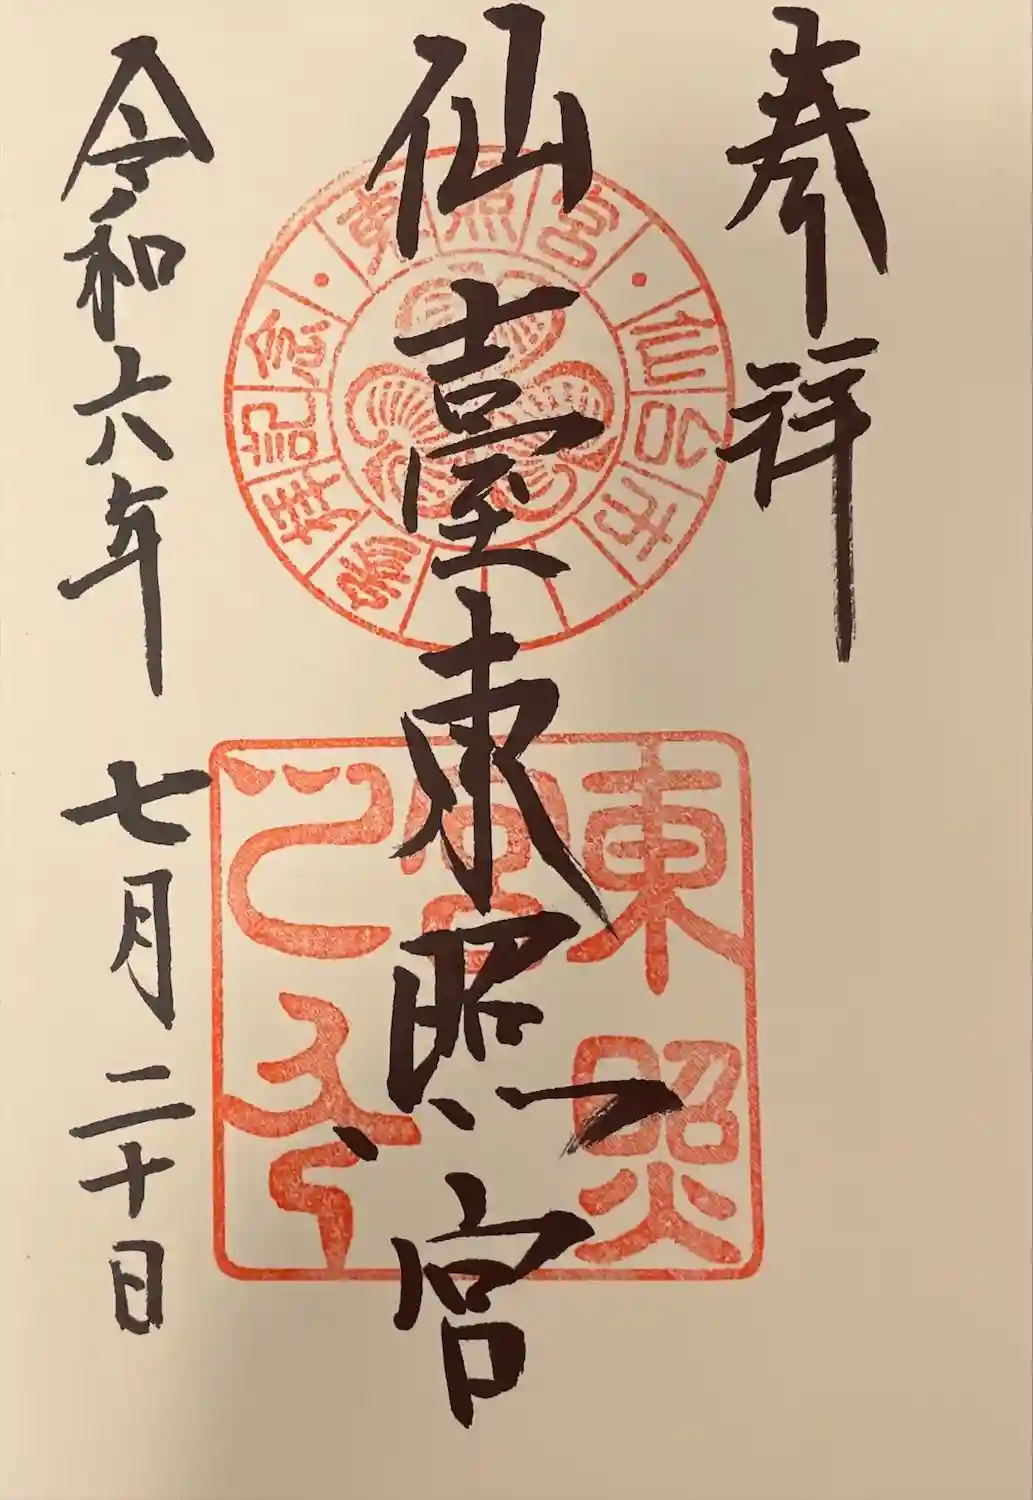 奉拝
仙臺東照宮
令和六年七月二十日
参拝記念・東照宮・仙台市
東照
宮
之印